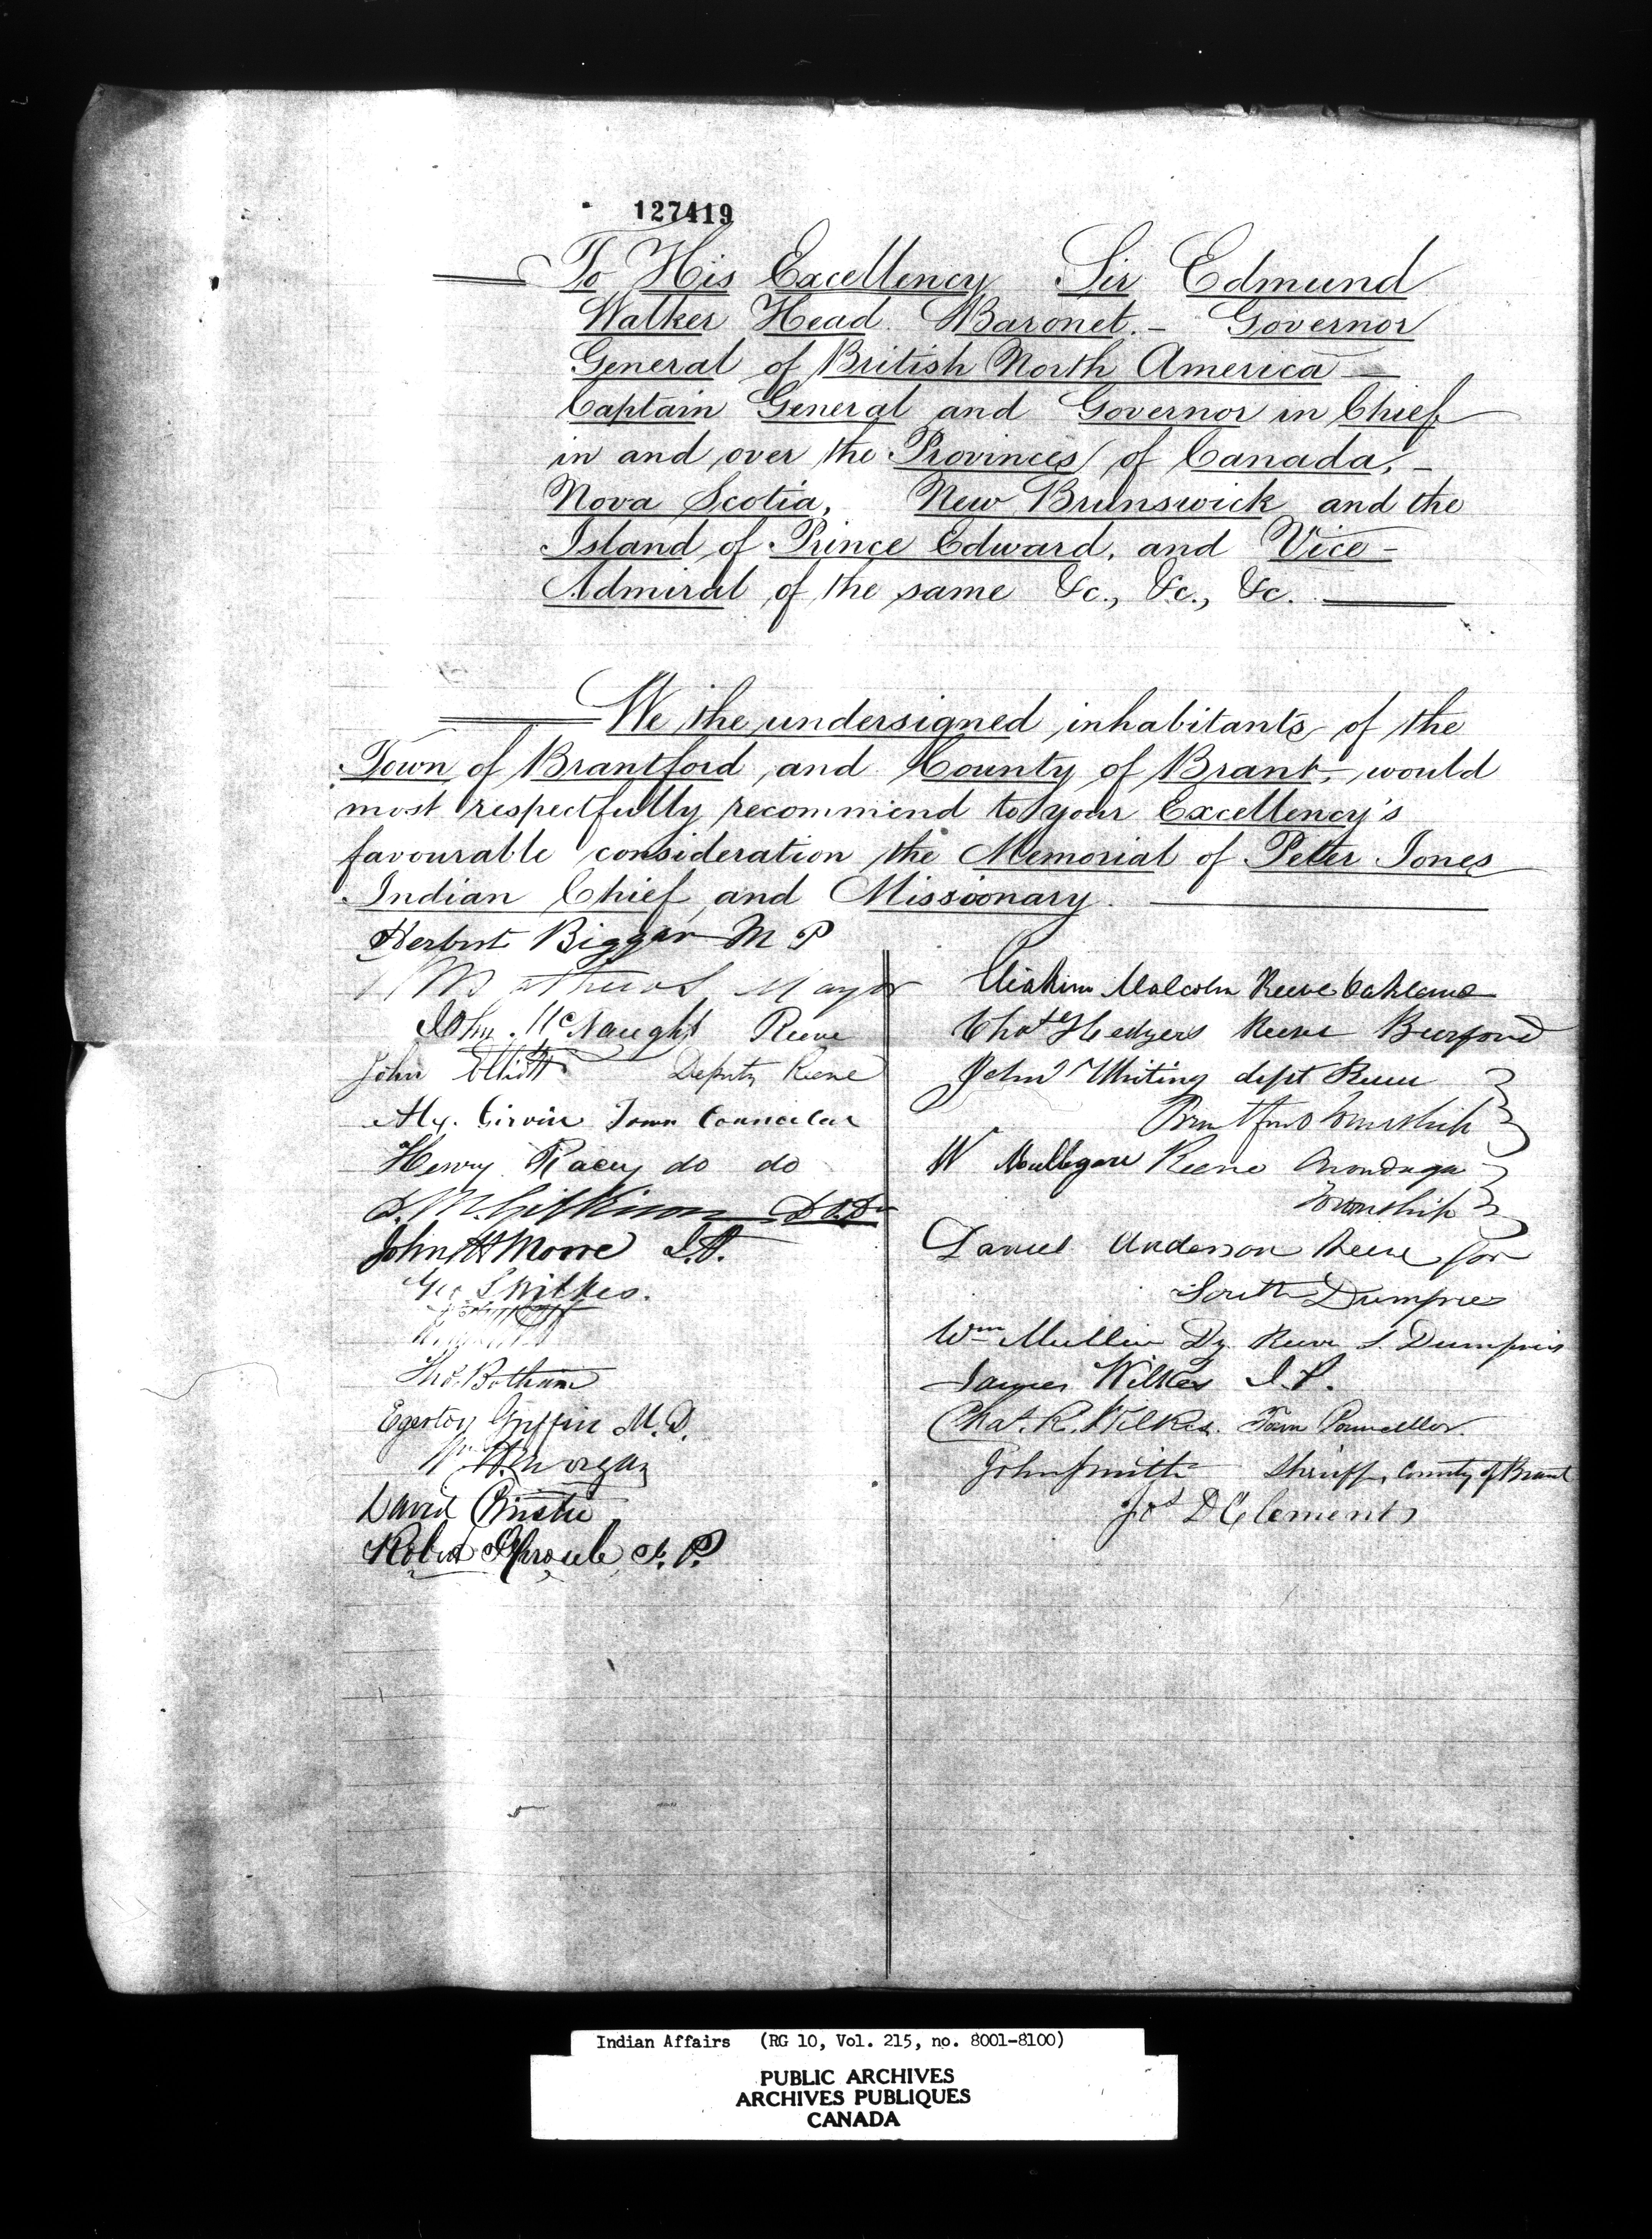 127419
To His Excellency Sir Edmund
Walker Head Baronet. – Governor
General of British North America –
Captain General and Governor in Chief
in and over the Provinces of Canada, –
Nova Scotia, New Brunswick and the
Island of Prince Edward, and Vice –
Admiral of the same &c., &c., &c.
We the undersigned inhabitants of the
Town of Brantford and County of Brant, would
most respectfully recommend to your Excellency's
favourable consideration the Memorial of Peter Jones
Indian Chief and Missionary.
Herbert Biggar M P
Mathews Mayor
John McNaught Reeve
John Elliott Deputy Reeve
Alx. Girvin Town Councilor
Henry Racey do do
John H Moore
Geo S Wilkes.
Thos. Botham
Egerton Griffin M.D.
Wm H Morgan
David Christie
Robert Sproule J. P.
Eliakim Malcolm Reeve Oakland
Chas Hedgers Reeve Burford
John Whiting dept Reeve
Brantford Township
W Mulligan Reeve Onondaga
Township
Daniel Anderson Reeve for
South Dumfries
Wm Mullin Dy Reeve S. Dumfries
James Wilkes J. P.
Chas. R. Wilkes. Town Councillor.
John Smith Sheriff, County of Brant
Jos D Clement
Indian Affairs (RG 10, Vol. 215, no. 8001-8100)
PUBLIC ARCHIVES
ARCHIVES PUBLIQUES
CANADA